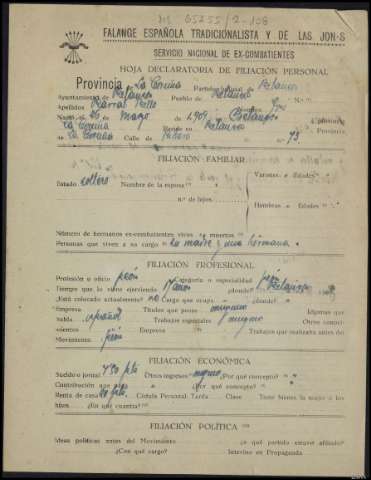 FALANGE ESPAÑOLA TRADICIONALISTA Y DE LAS JON-S
SERVICIO NACIONAL DE EX-COMBATIENTES
HOJA DECLARATORIA DE FILIACIÓN PERSONAL
Provincia La Coruña Partido judicial de Betanzos
Ayuntamiento de Betanzos Pueblo de Betanzos
Apellidos Nombre José
Nació el de Mayo de 1.909 Betanzos Provincia
La Coruña Reside en Betanzos Provincia
La Coruña Calle de N.º 73
FILIACIÓN FAMILIAR
Estado soltero Nombre de la esposa Varones = Edades
n.º de hijos
Hembras = Edades
Número de hermanos ex-combatientes vivos muertos
Personas que viven a su cargo la madre y una hermana
FILIACIÓN PROFESIONAL
Profesión u oficio peón Categoría o especialidad peón
Tiempo que lo viene ejerciendo años ¿dónde? Betanzos
¿Está colocado actualmente? no Cargo que ocupa ¿dónde?
Empresa Títulos que posee ninguno Idiomas que
habla español Trabajos especiales ninguno Otros conoci-
mientos Empresa Trabajos que realizaba antes del
Movimiento peón
FILIACIÓN ECONÓMICA
Sueldo o jornal Otros ingresos ninguno ¿Por qué concepto?
Contribución que paga ¿Por qué concepto?
Renta de casa Cédula Personal Tarifa Clase Tiene bienes la mujer o los
hijos ¿En qué cuantía?
FILIACIÓN POLÍTICA
Ideas políticas antes del Movimiento ¿a qué partido estuvo afiliado?
¿Con qué cargo? Intervino en Propaganda